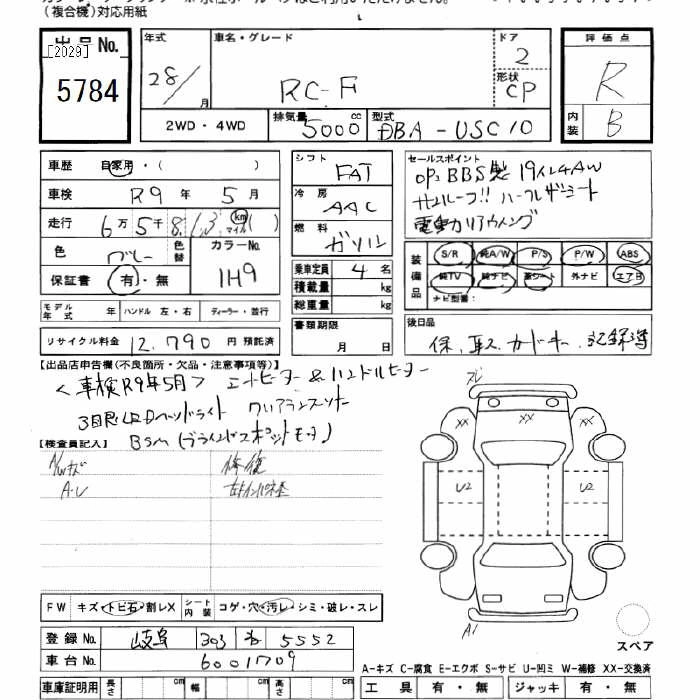 (複合機)対応用紙
出品No.
[2029]
5784
年式 車名・グレード ドア 評価点
28/ 月 RC-F 2 R
形状 CP
2WD・4WD 排気量 5000 cc 型式 DBA-USC10 内装 B
車歴 自家用・( )
車検 R9年 5月
走行 6万 5千 8 1 3 km マイル ( )
色 グレー 色替 カラーNo. 1H9
保証書 有・無
シフト FAT
冷房 AAC
燃料 ガソリン
乗車定員 4名
積載量 kg
総重量 kg
書類期限 月 日
セールスポイント
OP:BBS製 19インチAW
サンルーフ!! ハーフレザーシート
電動リアウイング
装備品 S/R 純A/W P/S P/W ABS
純TV 純ナビ 革シート 外ナビ エアB
ナビ型番:
モデル年式 年 ハンドル 左・右 ディーラー・並行
リサイクル料金 12,790円 預託済
後日品
保、取、カードキー、記録簿
【出品店申告欄(不良箇所・欠品・注意事項等)】
<車検R9年5月> シートヒーター & ハンドルヒーター
3眼LEDヘッドライト クリアランスソナー
BSM(ブラインドスポットモニター)
【検査員記入】
A/Wキズ 修復
A・U
FW キズ・トビ石・割レX シート内装 コゲ・穴・汚レ・シミ・破レ・スレ
登録No. 岐阜 303 5552
車台No. 6001709
車庫証明用 長さ cm 幅 cm 高さ cm
XX XX
U2 U2
A1
スペア
A-キズ C-腐食 E-エクボ S-サビ U-凹ミ W-補修 XX-交換済
工具 有・無 ジャッキ 有・無